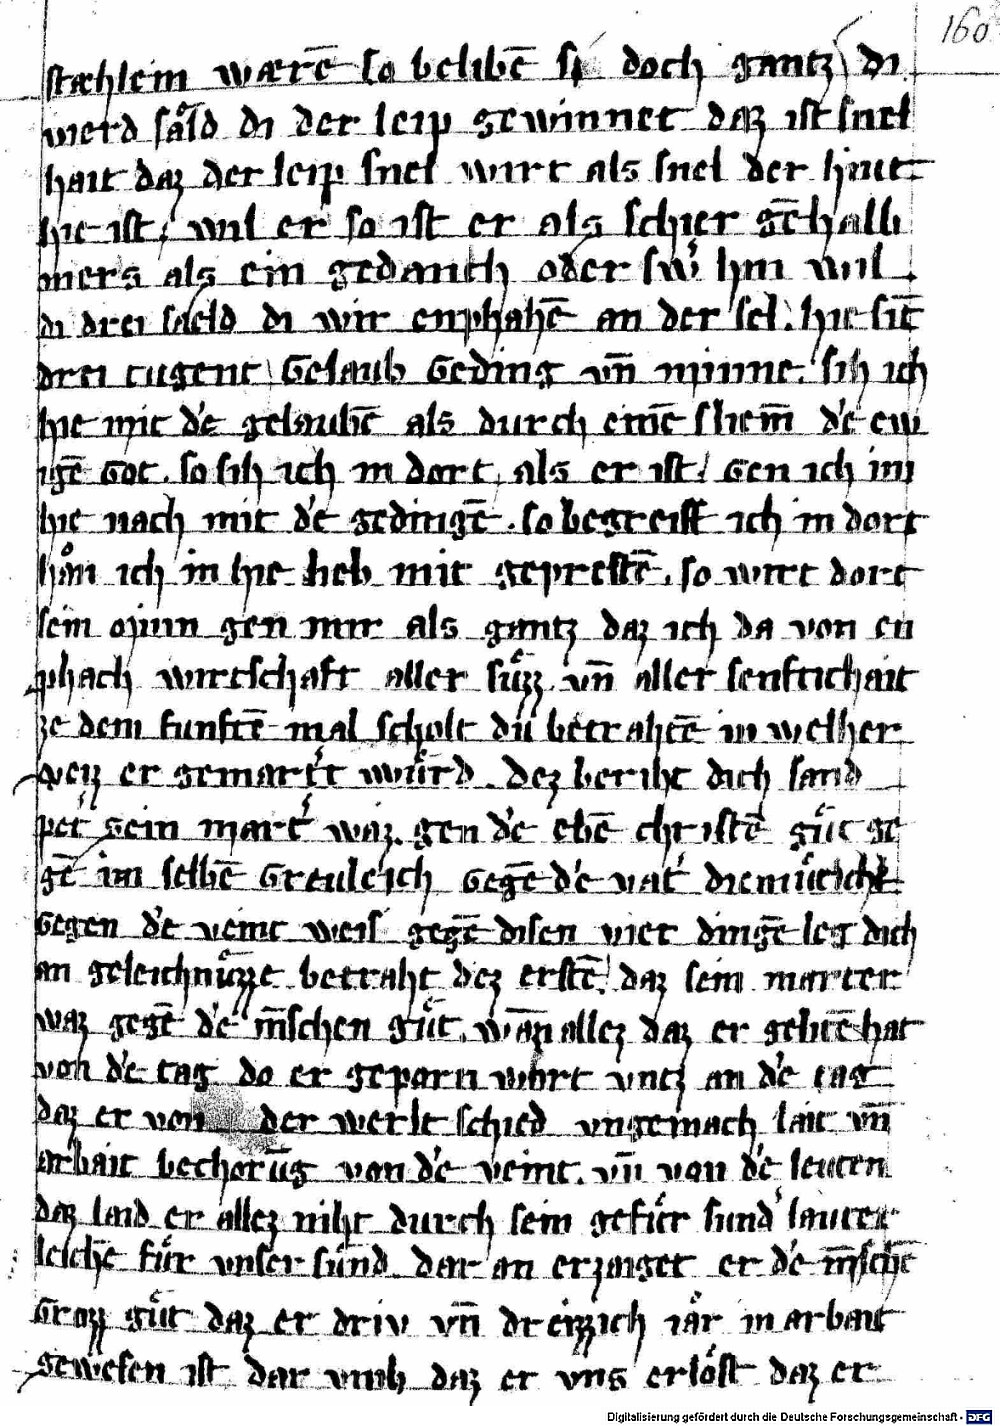 160
stæhlein wærē so belibē si doch gantz di
vierd sāͤld di der leip gewinnet daz ist snel
hait daz der leip snel wirt als snel der hint
hie ist wil er so ist er als schier gēhalb
mers als ein gedanch oder swͥ hin wil
di drei sæld di wir enphahē an der sel. hie sīt
drei tugent Gelaub Geding vn̄ minne. sih ich
hie mit d'e gelaubē als durch einē shem̄ d'e ew
igē Got. so sih ich in dort als er ist. Gen ich im
hie nach mit d'e gedingē. so begreiff ich in dort
hön ich in hie heb mit geprestē. so wirt dort
sein minn gen mir als gantz daz ich da von en
phach wirtschaft aller süzz vn̄ aller senftichait
ze dem funftē mal scholt dü betrahtē in welher
weiz er gemartͤt wuͤrd. dez beriht dich sand
pet' sein mart' waz gen d'e ebē christē guͤt ge
gē im selbē Greuleich Gegē d'e vat' diemuͤticht
Gegen d'e veint weis gegē disen viet dingē leg dich
an geleichnuͤzze betraht dez erstē daz sein marter
waz gegē d'e m̄schen guͤt. wān allez daz er gelitē hat
von d'e tag do er geporn wart vntz an d'e tag
daz er von der werlt schied vngemach lait vn̄
arbait bechorūg von d'e veint. vn̄ von d'e leuten
daz laid er allez niht durch sein gefuͤr sund' lauter
leichē fuͤr vnser suͤnd dar an erzaiget er d'e m̄schē
Grozz guͤt daz er driv vn̄ dreizzich iaͤr in arbait
gewesen ist dar vmb daz er vns erlöst daz er
Digitalisierung gefördert durch die Deutsche Forschungsgemeinschaft - DFG